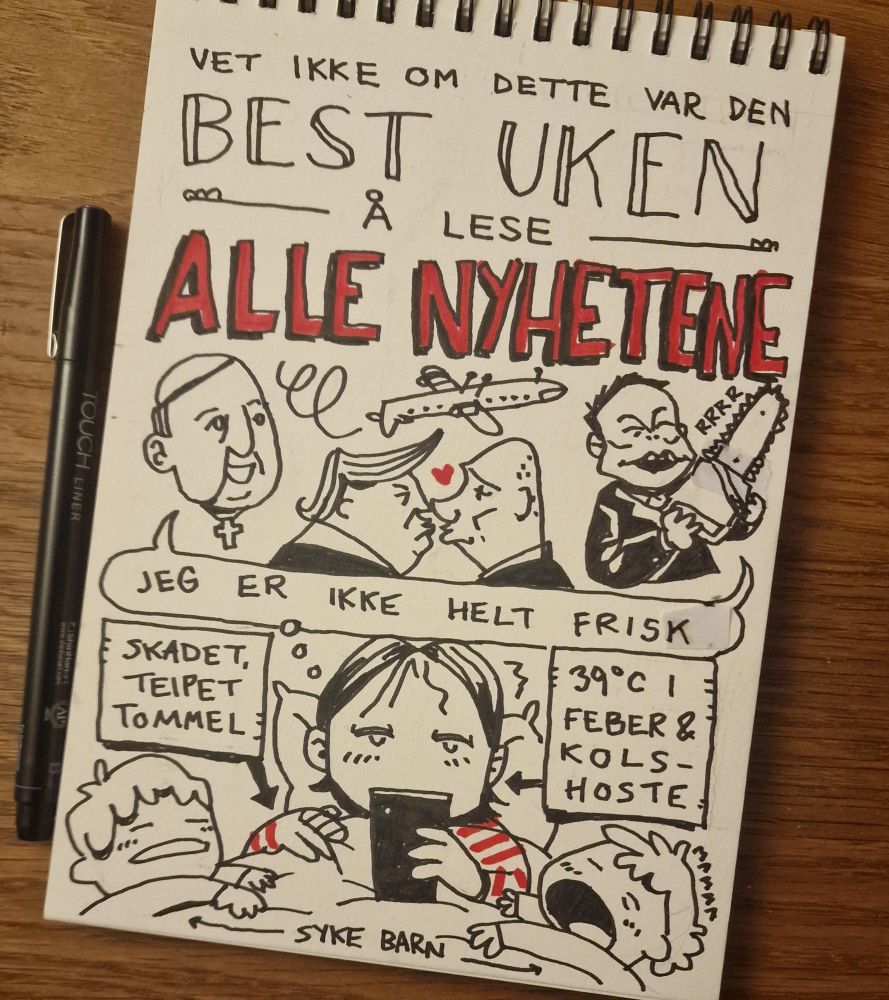 VET IKKE OM DETTE VAR DEN
BEST UKEN
Å LESE
ALLE NYHETENE
RRRR
JEG ER IKKE HELT FRISK
SKADET,
TEIPET
TOMMEL
39°C I
FEBER &
KOLS-
HOSTE
MAMMA
SYKE BARN
TOUCH LINER